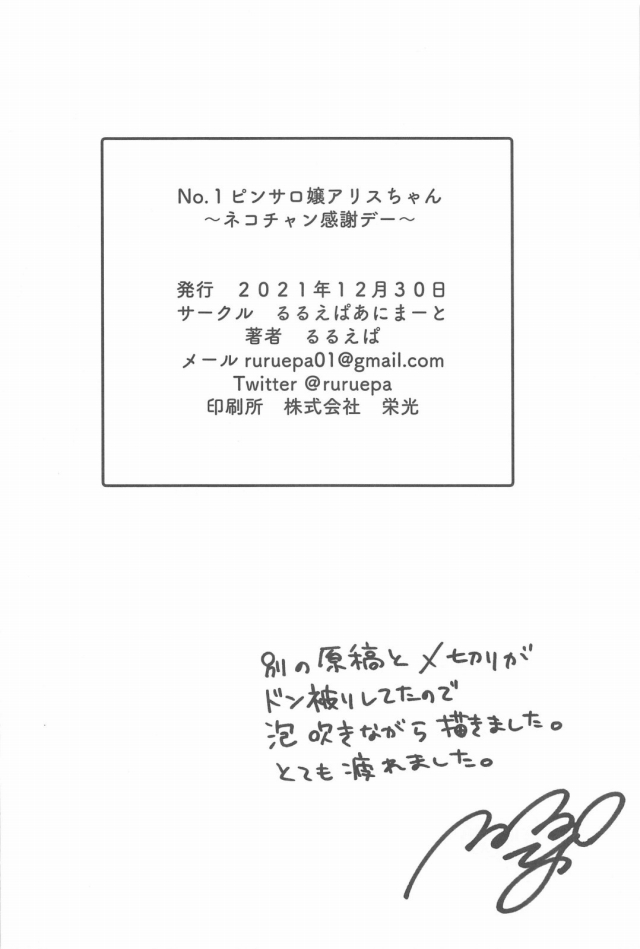 No.1ピンサロ嬢アリスちゃん
～ネコチャン感謝デー～
発行　２０２１年１２月３０日
サークル　るるえぱあにまーと
著者　るるえぱ
メール ruruepa01@gmail.com
Twitter @ruruepa
印刷所　株式会社　栄光
別の原稿と〆切りが
ドン被りしてたので
泡吹きながら描きました。
とても疲れました。